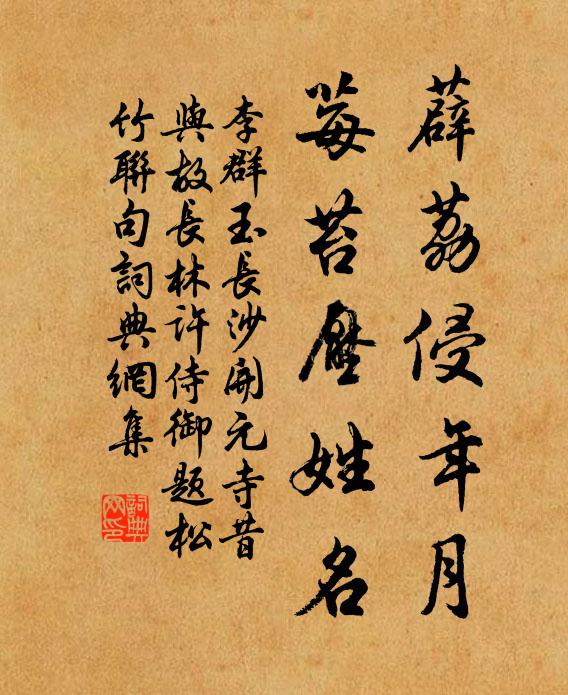 薜荔侵年月
莓苔壓姓名
李群玉長沙開元寺昔
與故長林許侍御題松
竹聯句詞典網集
詞典网印